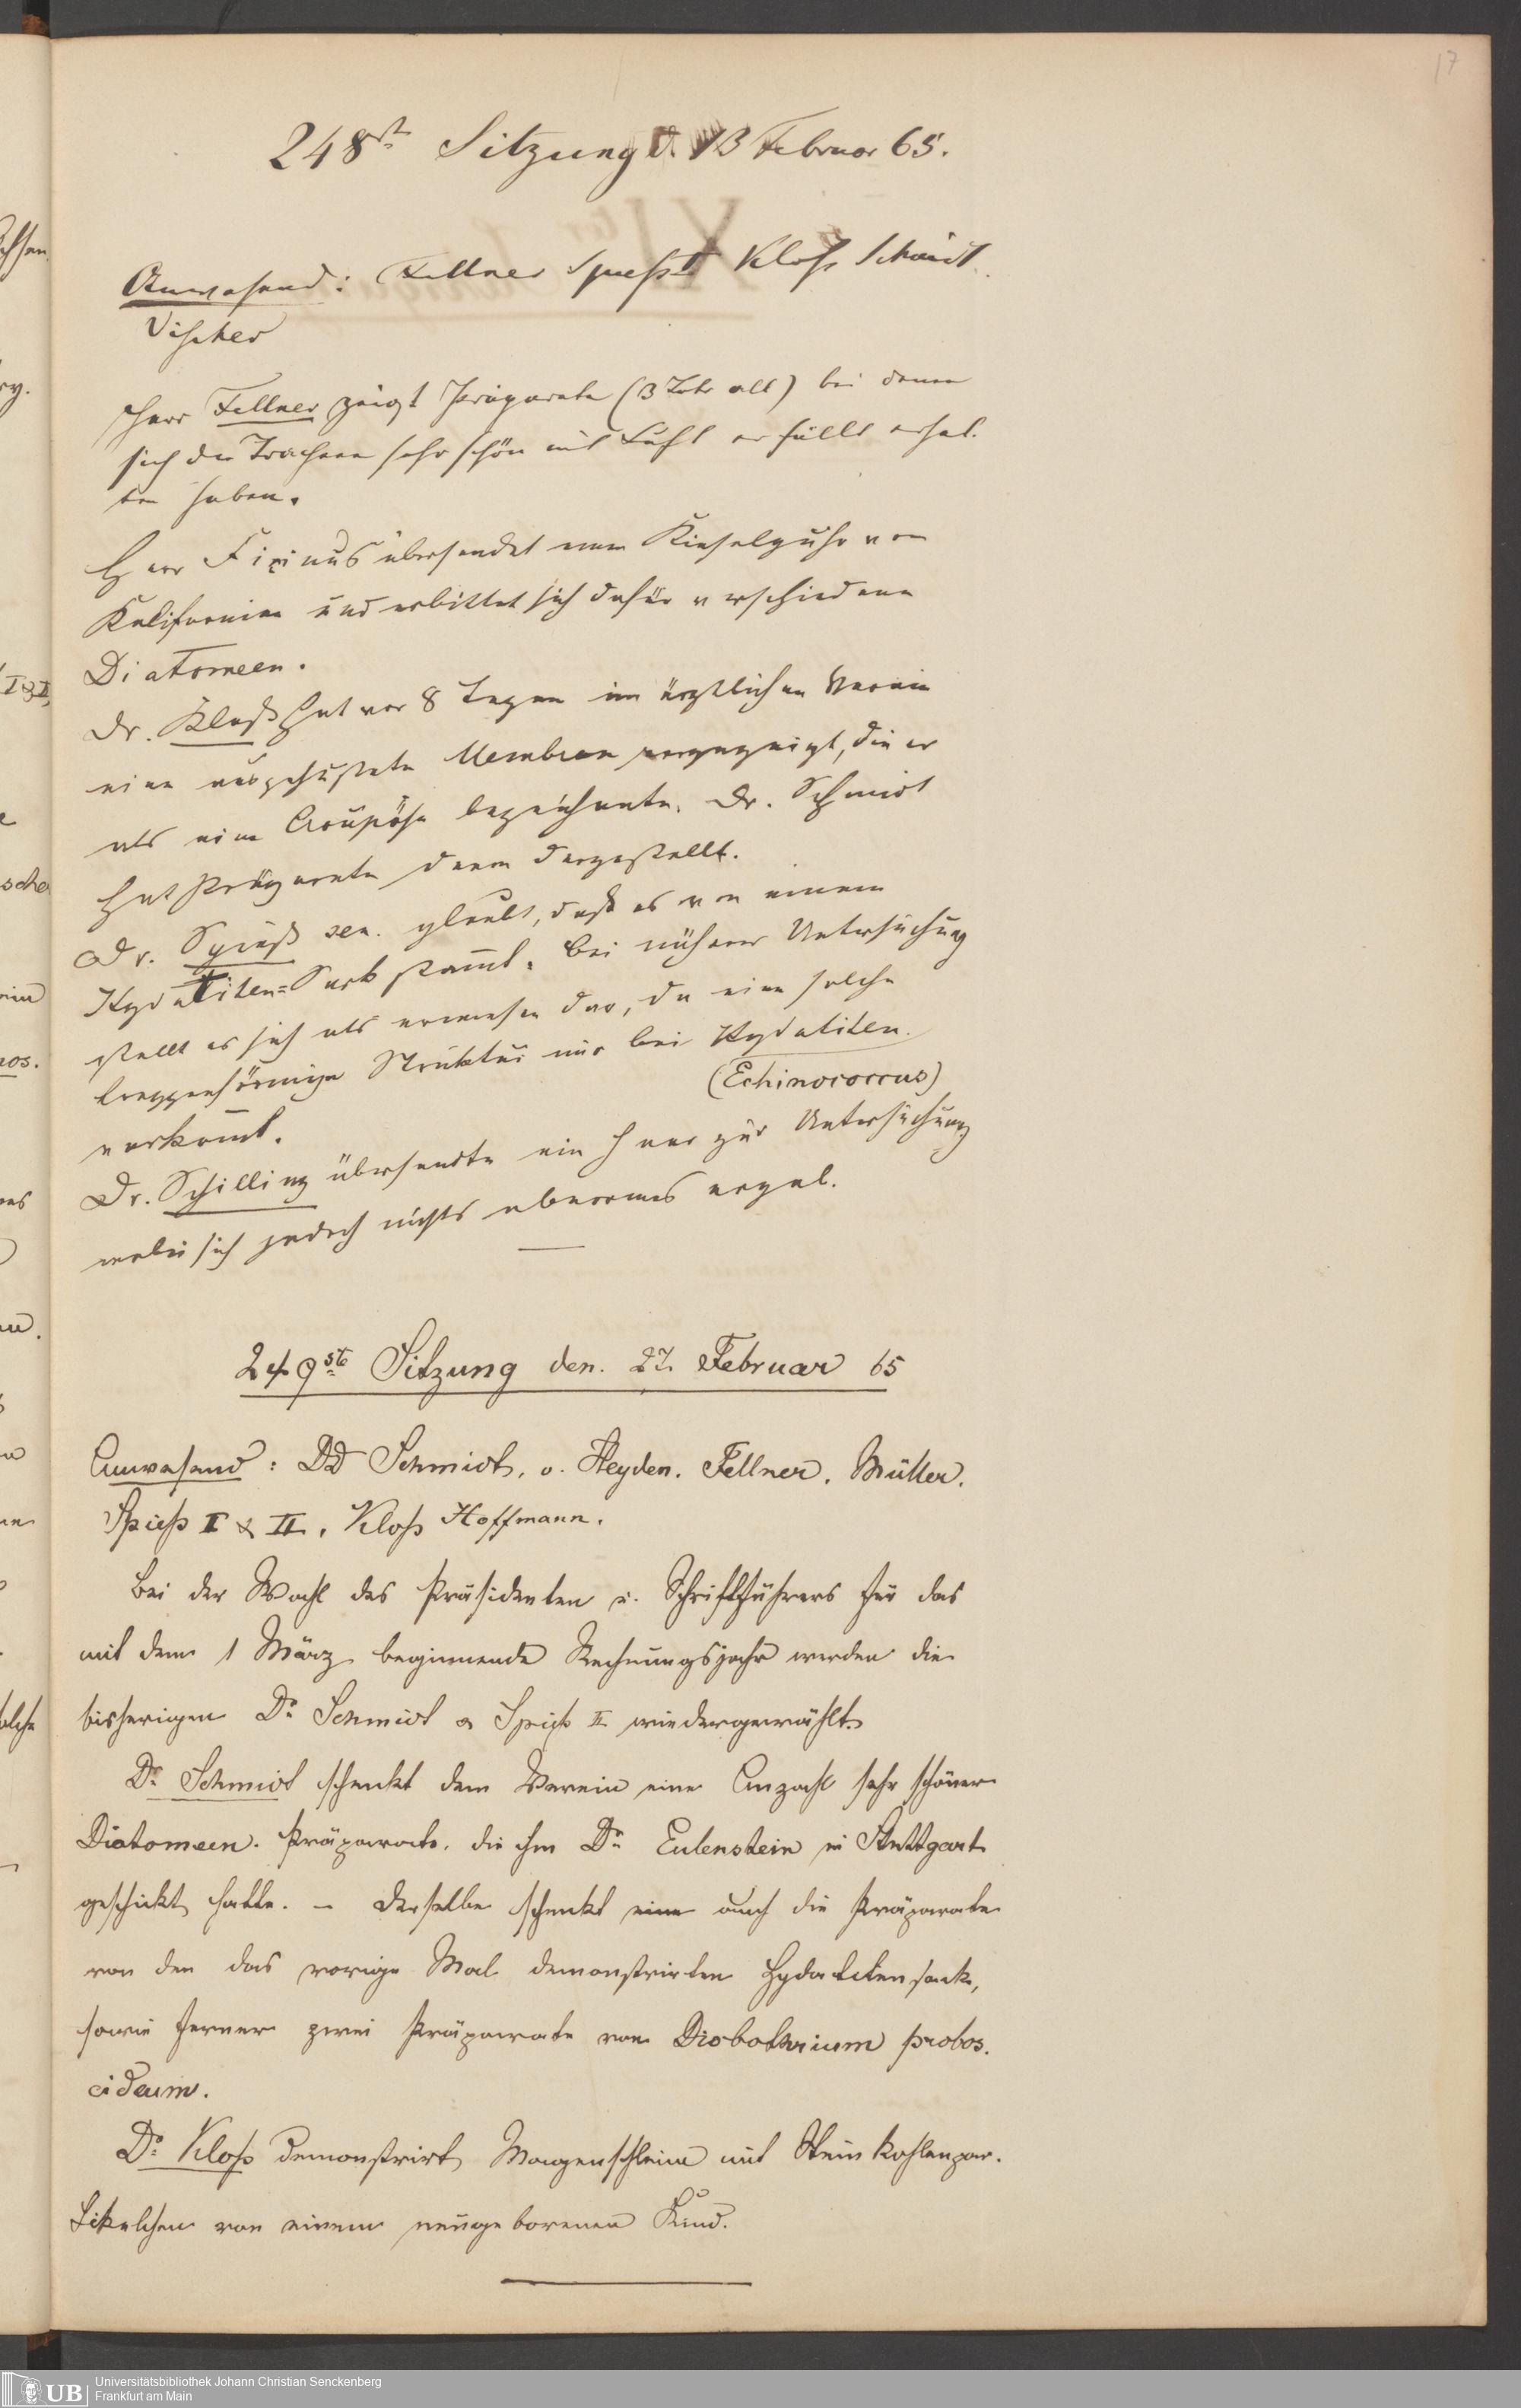 17
248st Sitzung d. 13 Februar 65.
Anwesend: Fellner Spieß I Kloß Schmidt
Vischer
Herr Fellner zeigt Präparate (3 Jahr alt) bei denen
sich die Tracheen sehr schön mit Luft erfüllt erhal-
ten haben.
Herr Ficinus übersendet Kieselguhr von
Kalifornien und erbittet sich dafür verschiedene
Diatomeen.
Dr. Kloß hat vor 8 Tagen im ärztlichen Verein
eine ausgehustete Membran vorgezeigt, die er
als eine Croupöse bezeichnete. Dr. Schmidt
hat Präparate davon dargestellt.
Dr. Spieß sen. glaubt, daß es von einem
Hydatiten-Sack stammt. Bei näherer Untersuchung
stellt es sich als erwiesen dar, da eine solche
treppenförmige Struktur nur bei Hydatiten
(Echinococcus)
vorkommt.
Dr. Schilling übersendete ein Haar zur Untersuchung
wobei sich jedoch nichts abnormes ergab.
249ste Sitzung den. 27. Februar 65
Anwesend: DD Schmidt, v. Heyden. Fellner. Müller.
Spieß I & II, Kloß Hoffmann.
Bei der Wahl des Präsidenten u. Schriftführers für das
mit dem 1 März beginnende Rechnungsjahr werden die
bisherigen Dr Schmidt & Spieß II wiedergewählt.
Dr Schmidt schenkt dem Verein eine Anzahl sehr schöner
Diatomeen-Präparate, die ihm Dr Eulenstein in Stuttgart
geschickt hatte. – Derselbe schenkt eine auch die Präparate
von den das vorige Mal demonstrirten Hydatitensack,
sowie ferner zwei Präparate von Diobothrium probos-
cideum.
Dr Kloß demonstrirt Magenschleim mit Steinkohlenpar-
tikelchen von einem neugeborenen Kind.
UB
Universitätsbibliothek Johann Christian Senckenberg
Frankfurt am Main